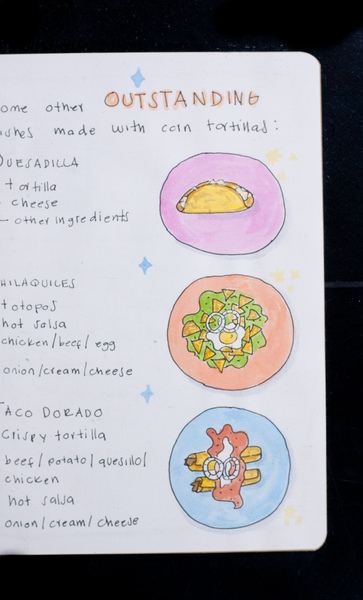 ome other OUTSTANDING
ishes made with corn tortillas:
QUESADILLA
tortilla
cheese
other ingredients
HILAQUILES
totopos
hot salsa
chicken/beef/egg
onion/cream/cheese
TACO DORADO
Crispy tortilla
beef/potato/quesillo/
chicken
hot salsa
onion/cream/cheese